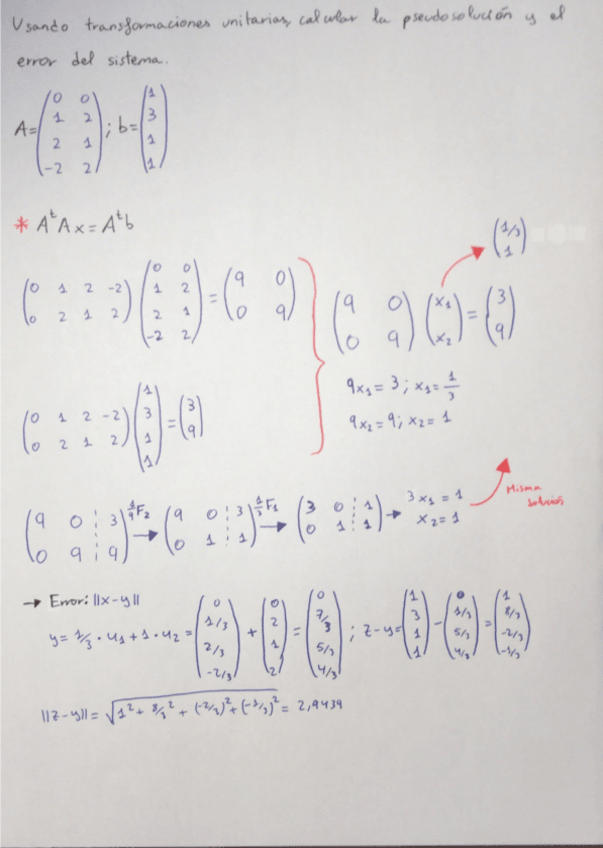 Usando transformaciones unitarias, calcular la pseudosolución y el
error del sistema.
A = (0 0; 1 2; 2 1; -2 2) ; b = (1; 3; 1; 1)
* AᵗAx = Aᵗb
(1/3; 1)
(0 1 2 -2; 0 2 1 2) (0 0; 1 2; 2 1; -2 2) = (9 0; 0 9)
(9 0; 0 9) (x₁; x₂) = (3; 9)
9x₁ = 3 ; x₁ = 1/3
9x₂ = 9 ; x₂ = 1
(0 1 2 -2; 0 2 1 2) (1; 3; 1; 1) = (3; 9)
Misma
solución
(9 0 ⋮ 3; 0 9 ⋮ 9) 1/9 F₂ → (9 0 ⋮ 3; 0 1 ⋮ 1) 1/3 F₁ → (3 0 ⋮ 1; 0 1 ⋮ 1) → 3x₁ = 1
x₂ = 1
→ Error: ||x-y||
y = 1/3 · u₁ + 1 · u₂ = (0; 1/3; 2/3; -2/3) + (0; 2; 1; 2) = (0; 7/3; 5/3; 4/3) ; z-y = (1; 3; 1; 1) - (0; 1/3; 5/3; 4/3) = (1; 8/3; -2/3; -1/3)
||z-y|| = √(1² + 8/3² + (-2/3)² + (-1/3)²) = 2,9439